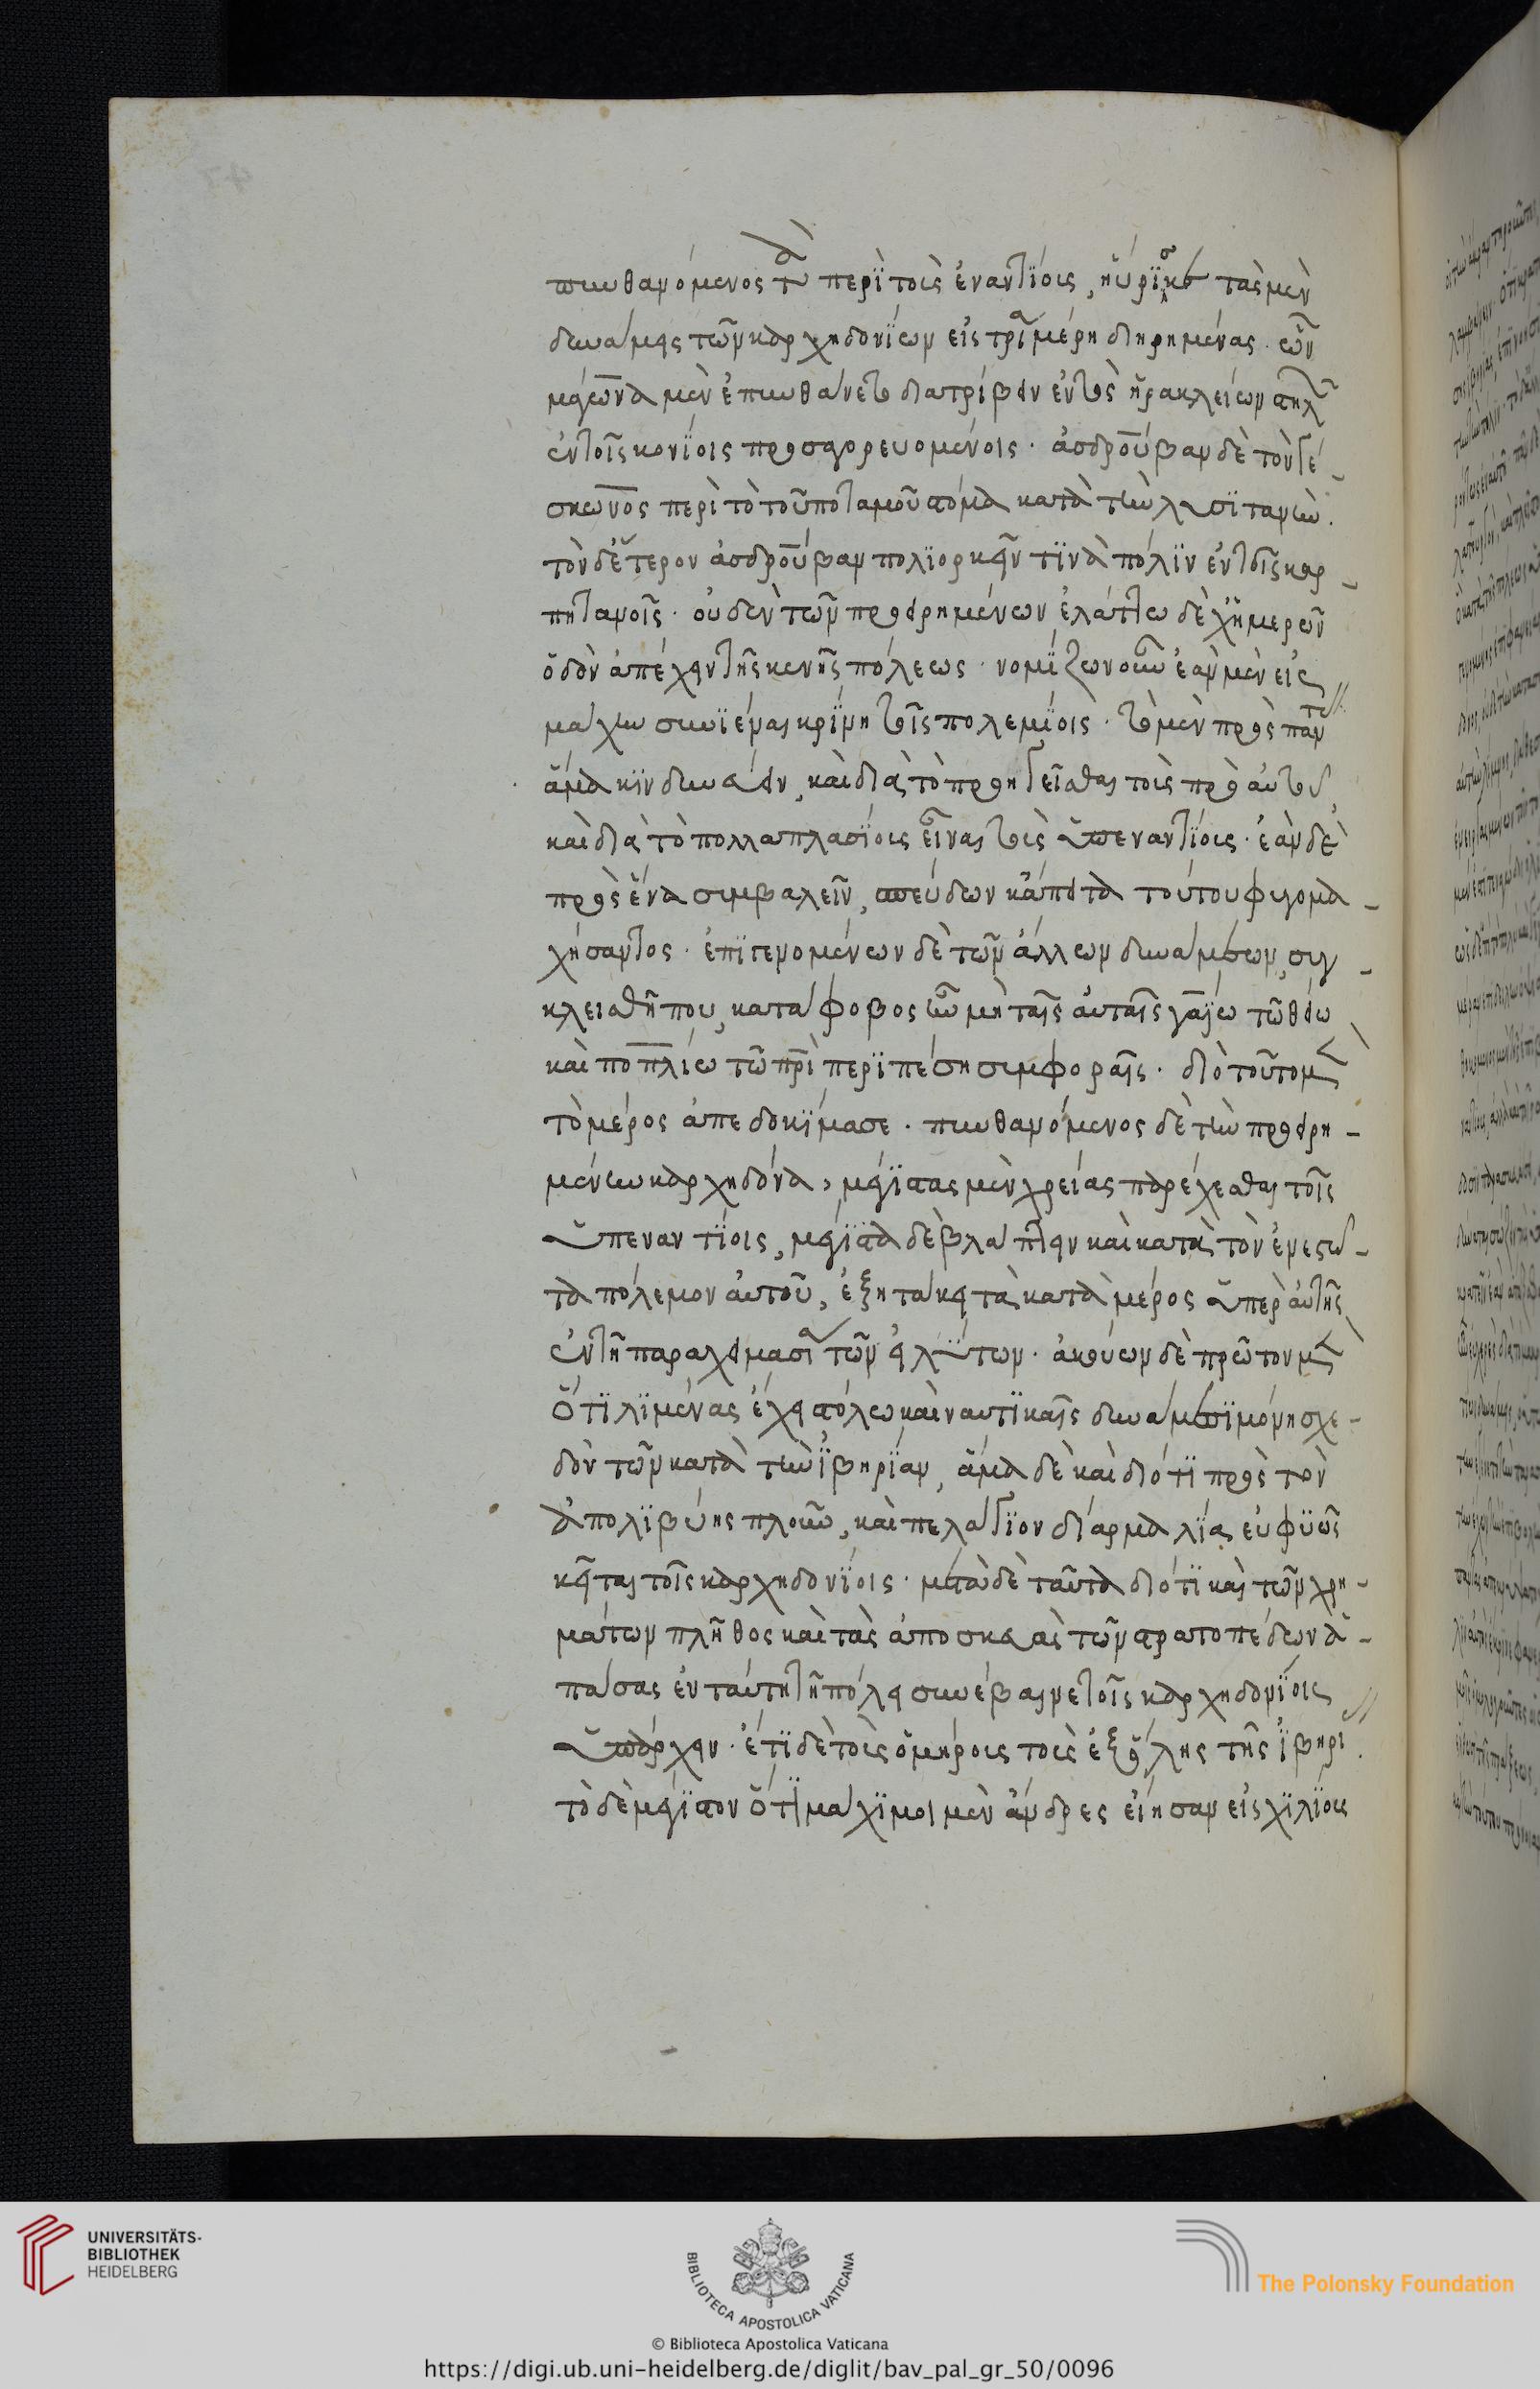 πυνθανόμενος τὰ περὶ τοὺς ἐναντίους, ηὕρισκε τὰς μὲν
δυνάμεις τῶν καρχηδονίων εἰς τρία μέρη διῃρημένας. ὧν
μάγωνα μὲν ἐπυνθάνετο διατρίβειν ἐντὸς ἡρακλείων στηλῶν
ἐν τοῖς κονίοις προσαγορευομένοις. ἀσδρούβαν δὲ τὸν γέ-
σκωνος περὶ τὸ τοῦ ποταμοῦ στόμα κατὰ τὴν λυσιτανήν.
τὸν δ' ἕτερον ἀσδρούβαν πολιορκεῖν τινὰ πόλιν ἐν τοῖς καρ-
πητανοῖς. οὐδὲν τῶν προειρημένων ἐλάττω δέχ' ἡμερῶν
ὁδὸν ἀπέχειν τῆς καινῆς πόλεως. νομίζων οὖν ἐὰν μὲν εἰς
μάχην συνιέναι κρίνῃ τοῖς πολεμίοις. τὸ μὲν πρὸς πάντας
ἅμα κινδυνεύειν, καὶ διὰ τὸ προηττεῖσθαι τοὺς πρὸ αὐτοῦ,
καὶ διὰ τὸ πολλαπλασίους εἶναι τοὺς ὑπεναντίους. ἐὰν δὲ
πρὸς ἕνα συμβαλεῖν, σπεύδων κἄπειτα τούτου φυγομα-
χήσαντος. ἐπιγενομένων δὲ τῶν ἄλλων δυνάμεων, συγ-
κλεισθῇ που, κατάφοβος ἦν μὴ ταῖς αὐταῖς γαΐω τῶ θείω
καὶ ποπλίω τῶ πατρὶ περιπέσῃ συμφοραῖς. διὸ τοῦτο μὲν
τὸ μέρος ἀπεδοκίμασε. πυνθανόμενος δὲ τὴν προειρη-
μένην καρχηδόνα, μεγίστας μὲν χρείας παρέχεσθαι τοῖς
ὑπεναντίοις, μέγιστα δὲ βλάπτειν καὶ κατὰ τὸν ἐνεστῶ-
τα πόλεμον αὐτοῦ, ἐξητάκει τὰ κατὰ μέρος ὑπὲρ αὐτῆς
ἐν τῇ παραχειμασίᾳ τῶν εἰδότων. ἀκούων δὲ πρῶτον μὲν
ὅτι λιμένας ἔχει στόλω καὶ ναυτικαῖς δυνάμεσι μόνη σχε-
δὸν τῶν κατὰ τὴν ἰβηρίαν, ἅμα δὲ καὶ διότι πρὸς τὸν
ἀπὸ λιβύης πλοῦν, καὶ πελάγιον δίαρμα λίαν εὐφυῶς
κεῖται τοῖς καρχηδονίοις. μετὰ δὲ ταῦτα διότι καὶ τῶν χρη-
μάτων πλῆθος καὶ τὰς ἀποσκευὰς τῶν στρατοπέδων ἁ-
πάσας ἐν ταύτῃ τῇ πόλει συνέβαινε τοῖς καρχηδονίοις
ὑπάρχειν. ἔτι δὲ τοὺς ὁμήρους τοὺς ἐξ ὅλης τῆς ἰβηρίας.
τὸ δὲ μέγιστον ὅτι μάχιμοι μὲν ἄνδρες εἴησαν εἰς χιλίους
UNIVERSITÄTS-
BIBLIOTHEK
HEIDELBERG
BIBLIOTECA APOSTOLICA VATICANA
The Polonsky Foundation
© Biblioteca Apostolica Vaticana
https://digi.ub.uni-heidelberg.de/diglit/bav_pal_gr_50/0096